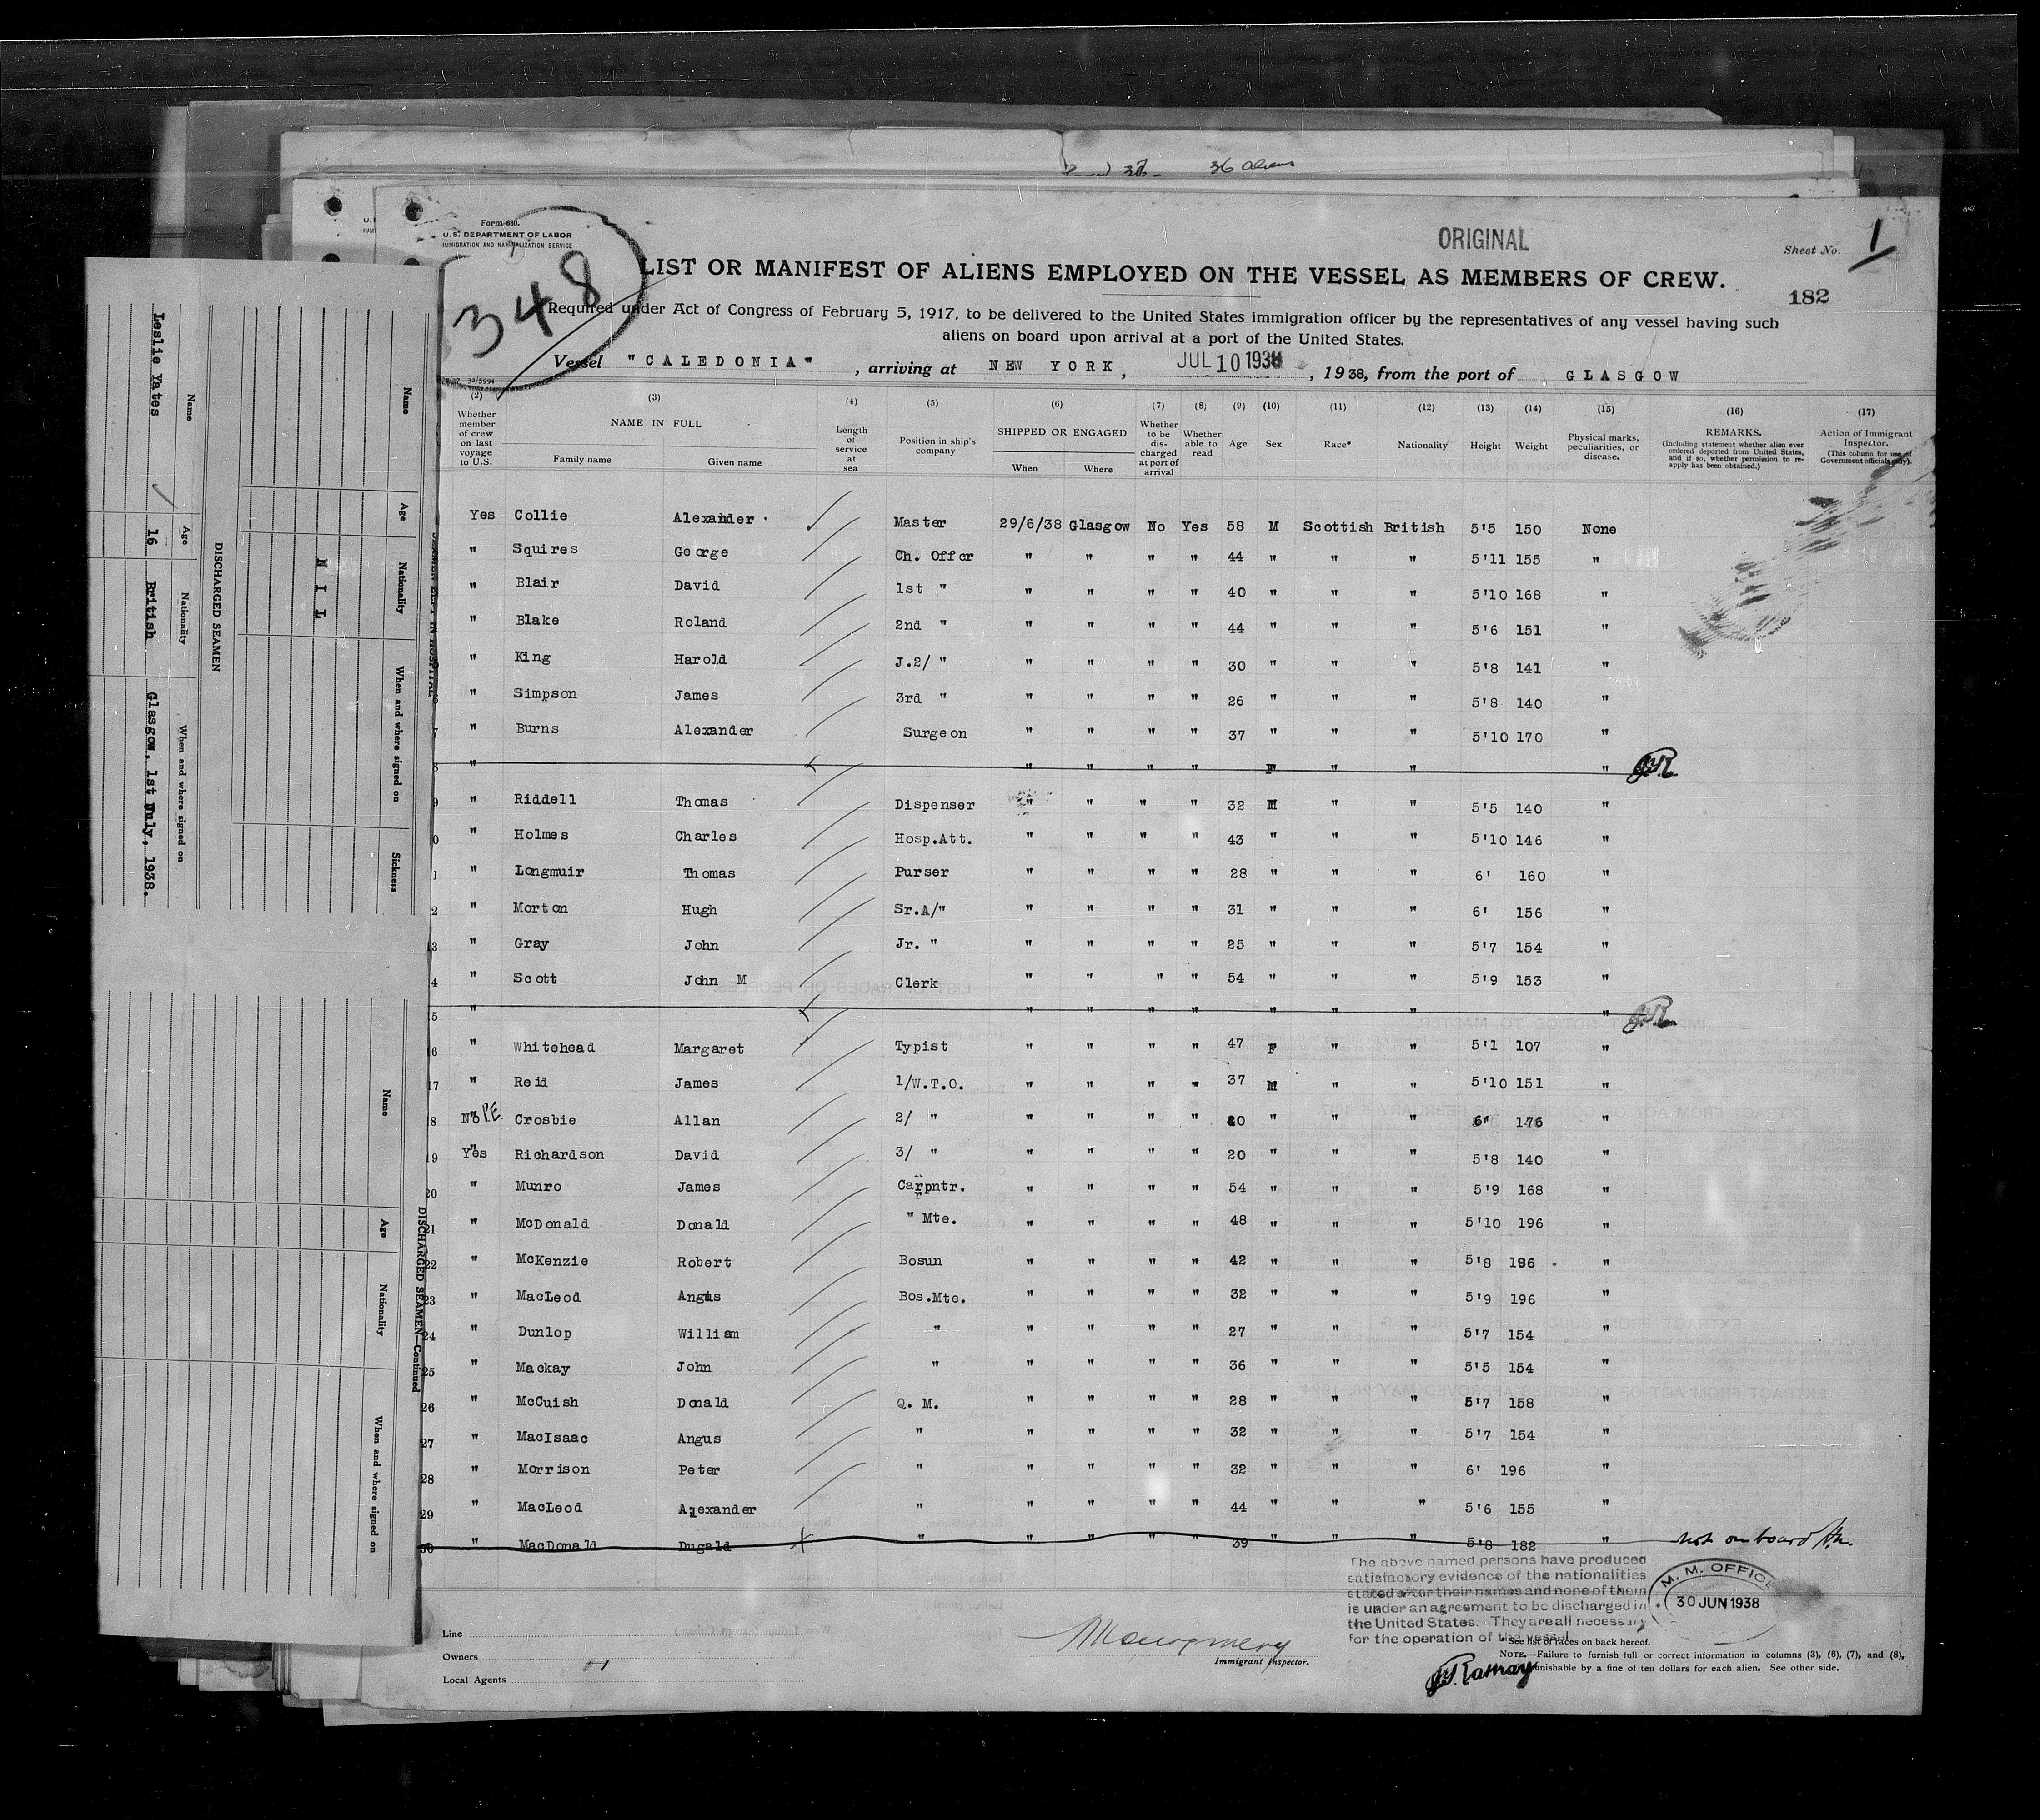 36 Aliens
Form 680.
U.S. DEPARTMENT OF LABOR
IMMIGRATION AND NATURALIZATION SERVICE
348
ORIGINAL
Sheet No. 1
182
LIST OR MANIFEST OF ALIENS EMPLOYED ON THE VESSEL AS MEMBERS OF CREW.
Required under Act of Congress of February 5, 1917, to be delivered to the United States immigration officer by the representatives of any vessel having such
aliens on board upon arrival at a port of the United States.
Vessel "CALEDONIA", arriving at NEW YORK, JUL 10 1938, 1938, from the port of GLASGOW
(2) (3) (4) (5) (6) (7) (8) (9) (10) (11) (12) (13) (14) (15) (16) (17)
Whether member of crew on last voyage to U.S. NAME IN FULL Family name Given name Length of service at sea Position in ship's company SHIPPED OR ENGAGED When Where Whether to be discharged at port of arrival Whether able to read Age Sex Race* Nationality Height Weight Physical marks, peculiarities, or disease. REMARKS. (Including statement whether alien ever ordered deported from United States, and if so, whether permission to reapply has been obtained.) Action of Immigrant Inspector. (This column for use of Government officials only).
Yes Collie Alexander Master 29/6/38 Glasgow No Yes 58 M Scottish British 5'5 150 None
" Squires George Ch. Offcr " " " " 44 " " " 5'11 155 "
" Blair David 1st " " " " " 40 " " " 5'10 168 "
" Blake Roland 2nd " " " " " 44 " " " 5'6 151 "
" King Harold J.2/ " " " " " 30 " " " 5'8 141 "
" Simpson James 3rd " " " " " 26 " " " 5'8 140 "
7 " Burns Alexander Surgeon " " " " 37 " " " 5'10 170 "
8 " " " " " F " " "
9 " Riddell Thomas Dispenser " " " " 32 M " " 5'5 140 "
0 " Holmes Charles Hosp.Att. " " " " 43 " " " 5'10 146 "
1 " Longmuir Thomas Purser " " " " 28 " " " 6' 160 "
2 " Morton Hugh Sr.A/" " " " " 31 " " " 6' 156 "
13 " Gray John Jr. " " " " " 25 " " " 5'7 154 "
4 " Scott John M Clerk " " " " 54 " " " 5'9 153 "
5 " " " " " " " " "
6 " Whitehead Margaret Typist " " " " 47 F " " 5'1 107 "
17 " Reid James 1/W.T.O. " " " " 37 M " " 5'10 151 "
8 Crosbie Allan 2/ " " " " " " " " 6" 176 "
19 Yes Richardson David 3/ " " " " " 20 " " " 5'8 140 "
20 " Munro James Carpntr. " " " " 54 " " " 5'9 168 "
21 " McDonald Donald " Mte. " " " " 48 " " " 5'10 196 "
22 " McKenzie Robert Bosun " " " " 42 " " " 5'8 196 "
23 " MacLeod Angus Bos.Mte. " " " " 32 " " " 5'9 196 "
24 " Dunlop William " " " " " 27 " " " 5'7 154 "
25 " Mackay John " " " " " 36 " " " 5'5 154 "
26 " McCuish Donald Q. M. " " " " 28 " " " 5'7 158 "
27 " MacIsaac Angus " " " " " 32 " " " 5'7 154 "
28 " Morrison Peter " " " " " 32 " " " 6' 196 "
29 " MacLeod Alexander " " " " " 44 " " " 5'6 155 "
30 " MacDonald Dugald " " " " " 39 " " " 5'8 182 " not on board
The above named persons have produced
satisfactory evidence of the nationalities
stated after their names and none of them
is under an agreement to be discharged in
the United States. They are all necessary
for the operation of the vessel.
M. M. OFFICE
30 JUN 1938
Line
Owners
Local Agents
Montgomery
Immigrant Inspector.
*See list of races on back hereof.
NOTE.—Failure to furnish full or correct information in columns (3), (6), (7), and (8),
punishable by a fine of ten dollars for each alien. See other side.
Ramay
SEAMEN LEFT IN HOSPITAL
Name Age Nationality When and where signed on Sickness
NIL
DISCHARGED SEAMEN
Name Age Nationality When and where signed on
Leslie Yates 16 British Glasgow, 1st July, 1938.
DISCHARGED SEAMEN—Continued
Name Age Nationality When and where signed on